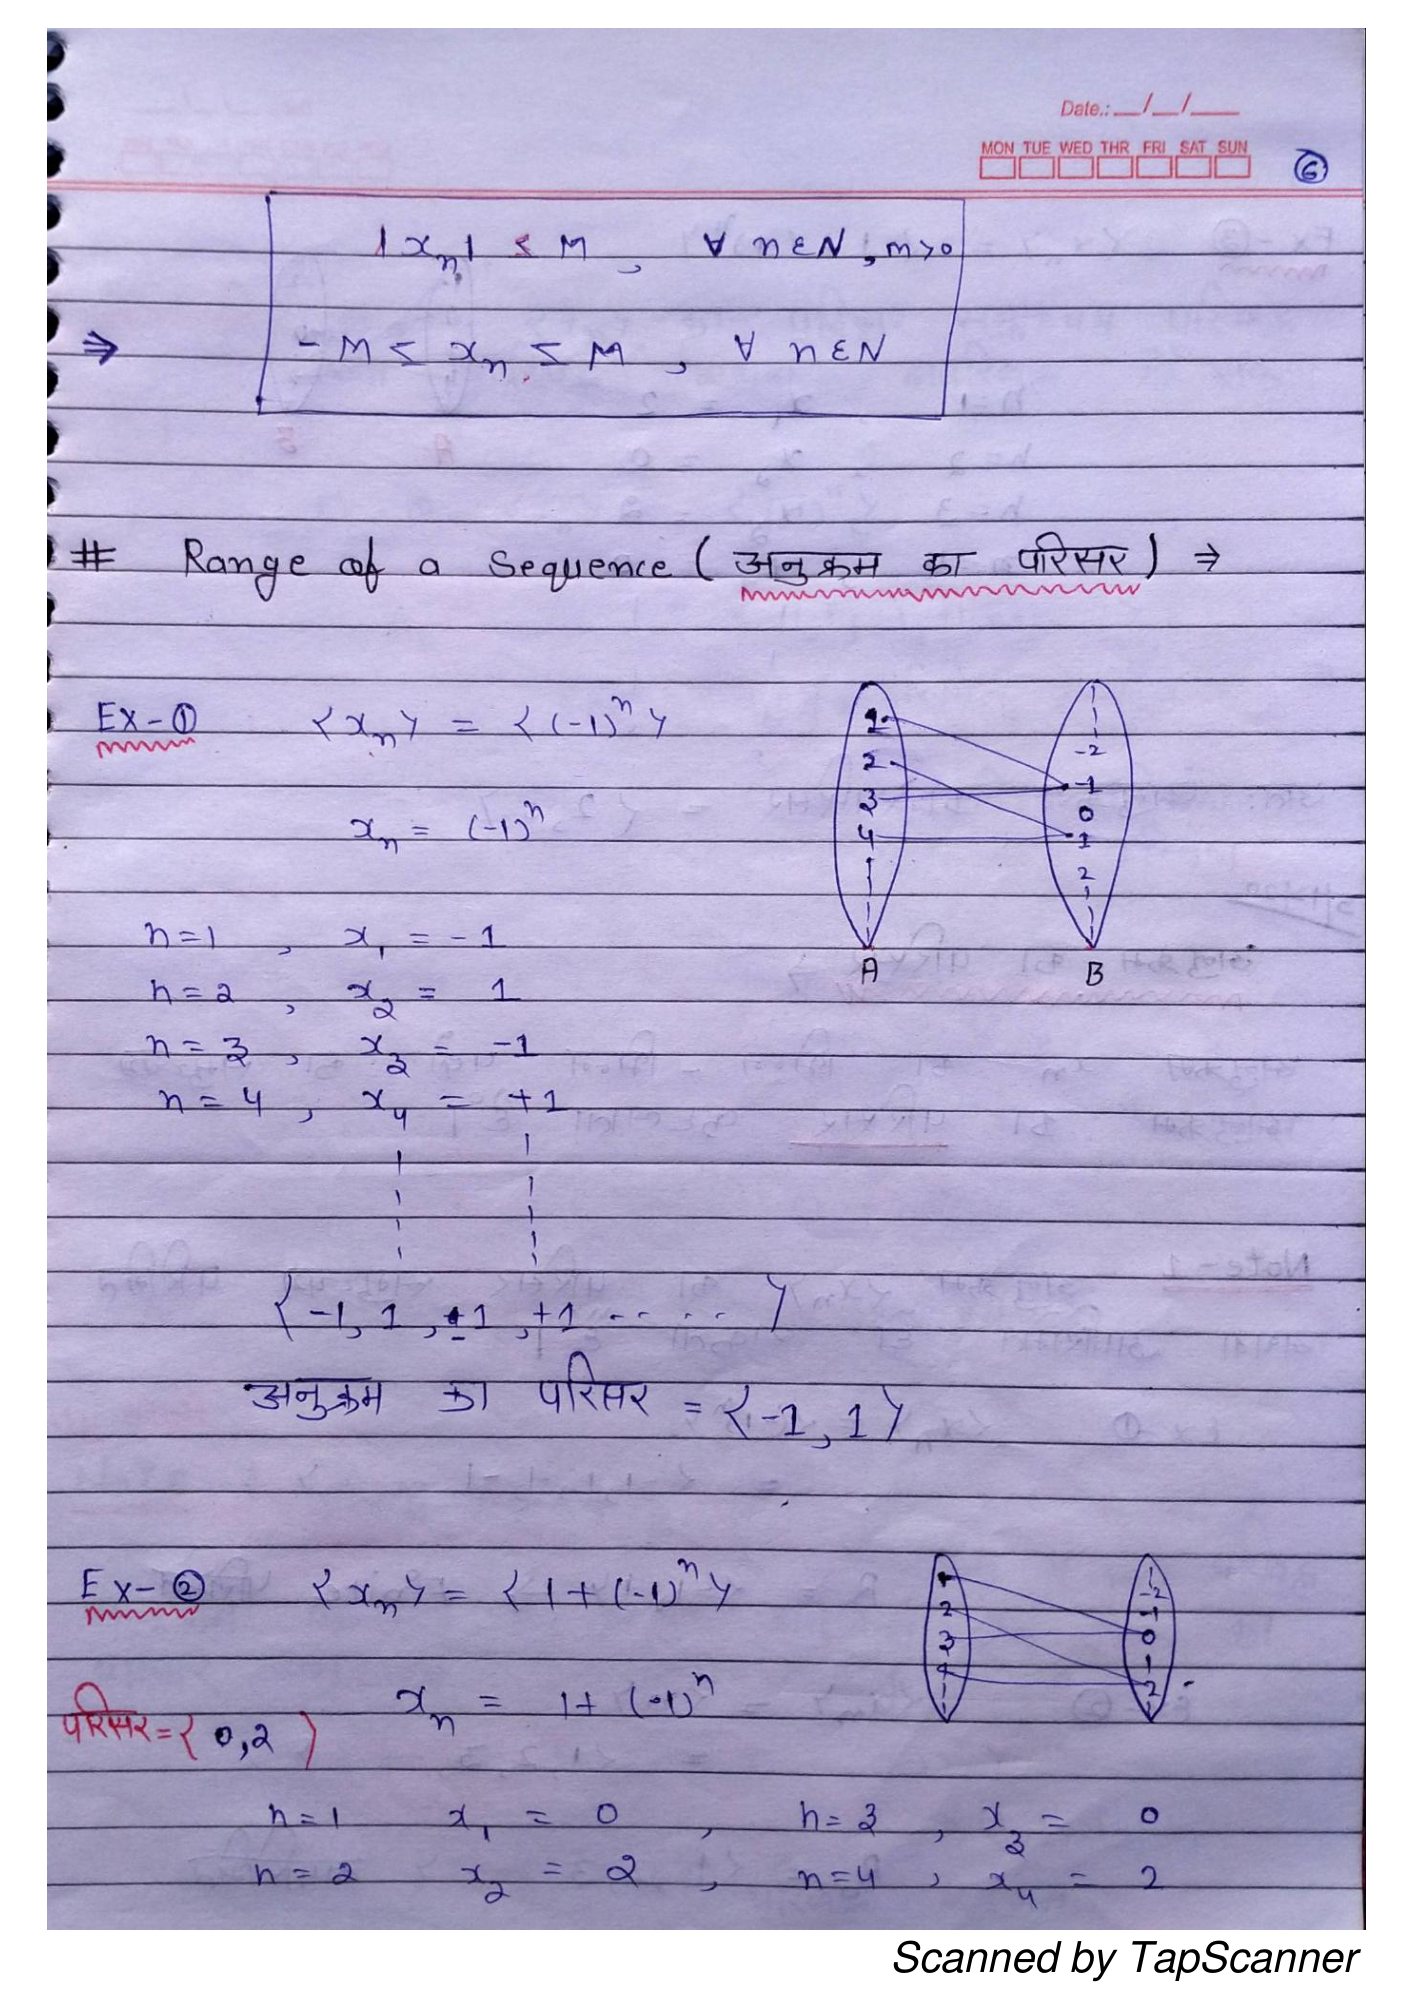 Date.: __/__/___
MON TUE WED THR FRI SAT SUN
6
|xₙ| ≤ M , ∀ n∈N, m>0
⇒ -M ≤ xₙ ≤ M , ∀ n∈N
# Range of a Sequence (अनुक्रम का परिसर) ⇒
Ex-① <xₙ> = <(-1)ⁿ>
xₙ = (-1)ⁿ
1 2 3 4
A
-2 -1 0 1 2
B
n=1 , x₁ = -1
n=2 , x₂ = 1
n=3 , x₃ = -1
n=4 , x₄ = +1
{-1, 1, -1, +1 .....}
अनुक्रम का परिसर = {-1, 1}
Ex-② <xₙ> = <1+(-1)ⁿ>
1 2 3 4
-2 -1 0 1 2
xₙ = 1+(-1)ⁿ
परिसर = {0,2}
n=1 x₁ = 0 , n=3 , x₃ = 0
n=2 x₂ = 2 , n=4 , x₄ = 2
Scanned by TapScanner